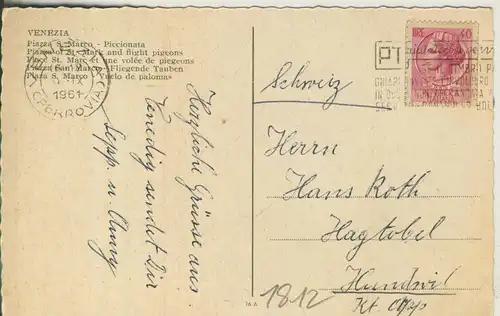 VENEZIA
Piazza S. Marco - Piccionata
Piazza of St. Mark and flight pigeons
Place St. Marc et une volée de piegeons
Piazza San Marco - Fliegende Tauben
Plaza S. Marco - Vuelo de palomas
1961
FERROVIA
PT
40
Herzliche Grüsse aus
Venedig sendet Dir
Sepp u. Anny
Schweiz
Herrn
Hans Roth
Hagtobel
Hundwil
Kt. App
1812